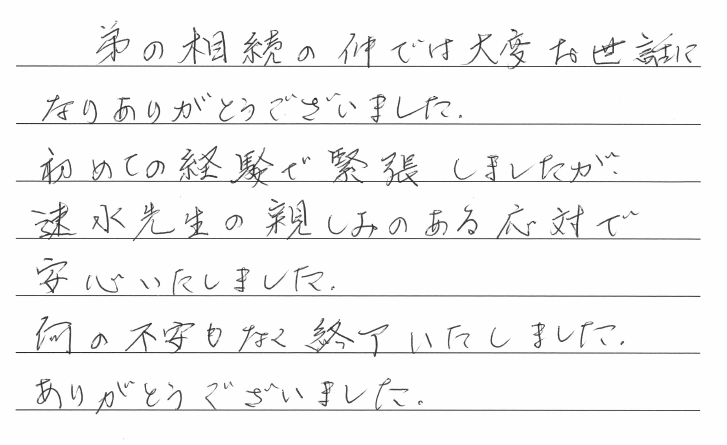 弟の相続の仲では大変お世話に
なりありがとうございました.
初めての経験で緊張しましたが、
速水先生の親しみのある応対で
安心いたしました.
何の不安もなく終了いたしました.
ありがとうございました.